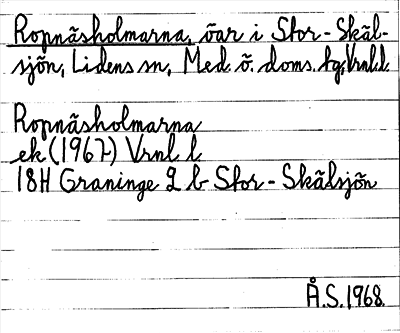 Ropnäsholmarna, öar i Stor-Skäl-
sjön, Lidens sn, Med. ö. doms. tg, Vrnl. l.
Ropnäsholmarna
ek (1967) Vrnl l
18H Graninge 2 b Stor-Skälsjön
Å.S. 1968.